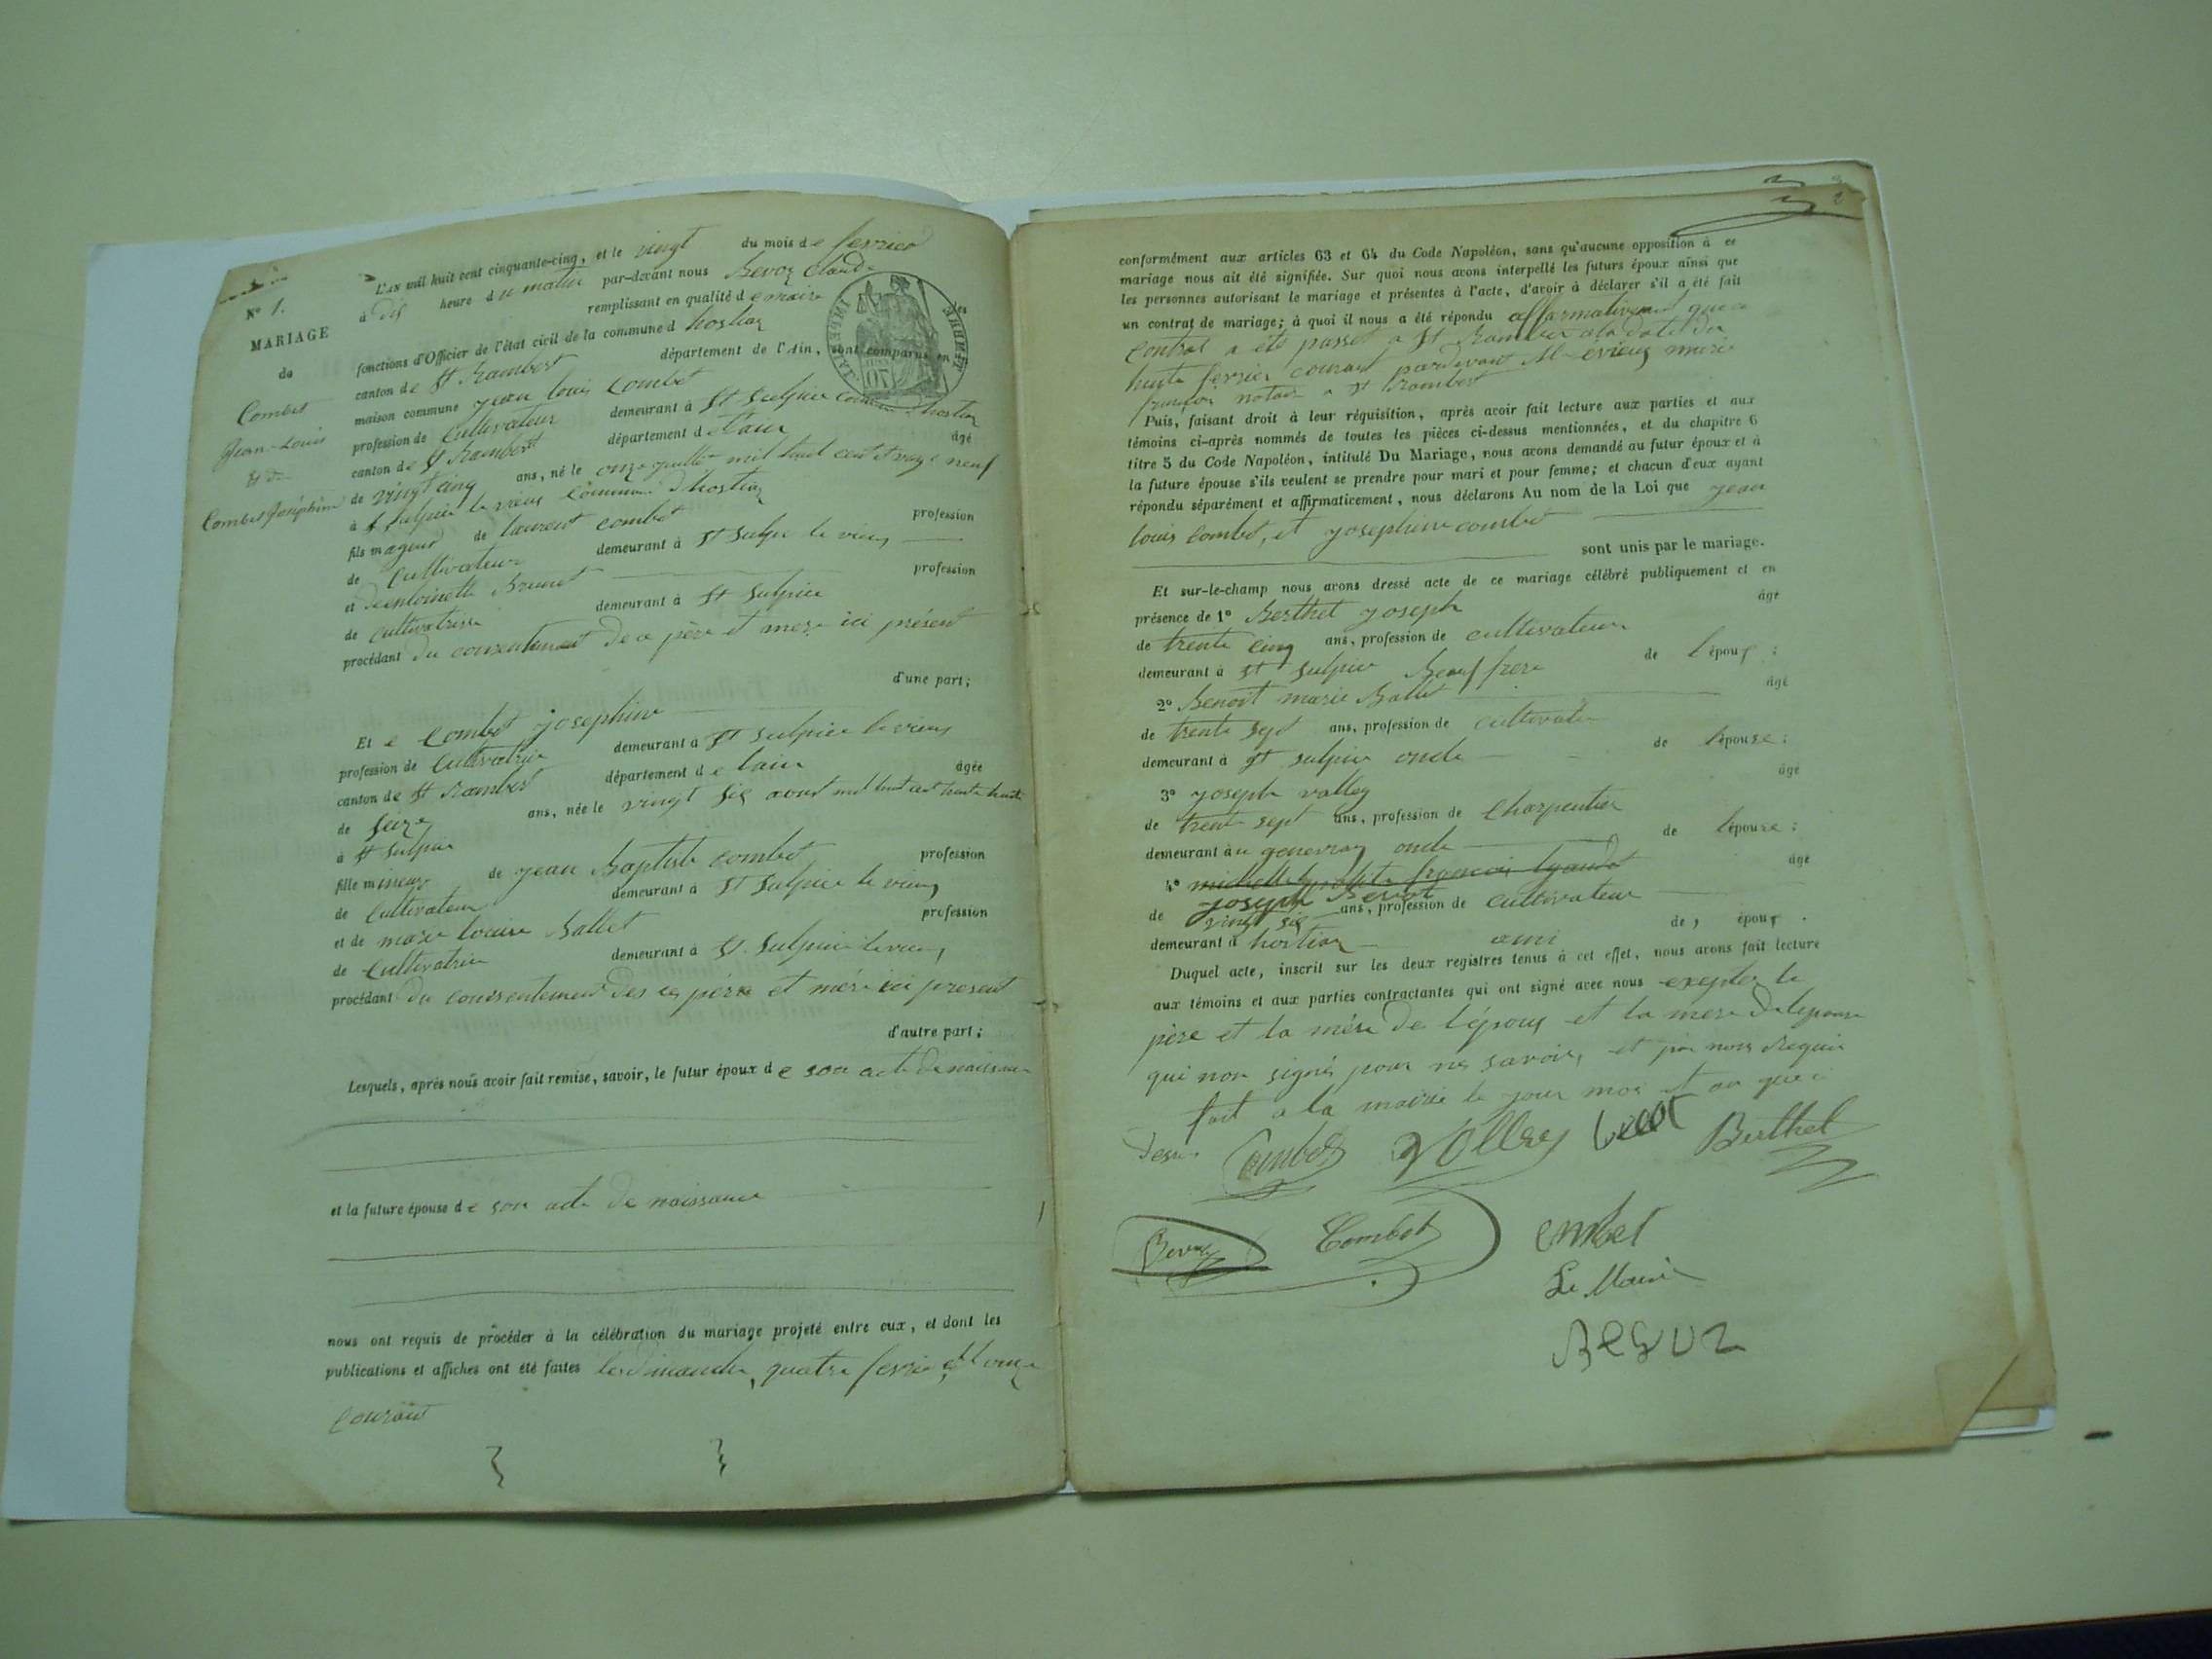 N° 1.
MARIAGE
de
Combet
Jean-Louis
Et de
Combet Joséphine
L'AN mil huit cent cinquante-cinq, et le vingt du mois de fevrier
à dix heure du matin par-devant nous Bevoz Claude
remplissant en qualité de maire les
fonctions d'Officier de l'état civil de la commune d hostiaz
canton de St Rambert département de l'Ain, sont comparus en
maison commune jean louis Combet
profession de Cultivateur demeurant à St Sulpice Commune d'hostiaz
canton de St Rambert département de l'ain âgé
de vingt cinq ans, né le onze juillet mil huit cent vingt neuf
à St Sulpice le vieux Commune d'hostiaz
fils majeur de laurent combet profession
de Cultivateur demeurant à St Sulpice le vieux
et de antoinette Brunet profession
de cultivatrice demeurant à St Sulpice
procédant du consentement de ce père et mere ici présent
d'une part;
Et e Combet josephine
profession de Cultivatrice demeurant à St Sulpice le vieux
canton de St Rambert département de lain âgée
de seize ans, née le vingt six aoust mil huit cent trente huit
à St Sulpice
fille mineure de jean Baptiste combet profession
de Cultivateur demeurant à St Sulpice le vieux
et de marie louise Ballet profession
de Cultivatrice demeurant à St. Sulpice le vieux
procédant du consentement des ces père et mère ici present
d'autre part;
Lesquels, après nous avoir fait remise, savoir, le futur époux de son acte de naissance
et la future épouse de son acte de naissance
nous ont requis de procéder à la célébration du mariage projeté entre eux, et dont les
publications et affiches ont été faites les dimanche, quatre fevrier et onze
Courant
TIMBRE IMPÉRIAL
conformément aux articles 63 et 64 du Code Napoléon, sans qu'aucune opposition à ce
mariage nous ait été signifiée. Sur quoi nous avons interpellé les futurs époux ainsi que
les personnes autorisant le mariage et présentes à l'acte, d'avoir à déclarer s'il a été fait
un contrat de mariage; à quoi il nous a été répondu affarmativement que ce
Contrat a été passé a St Rambert a la date du
huit fevrier courant pardevant Me
notaire a St Rambert
Puis, faisant droit à leur réquisition, après avoir fait lecture aux parties et aux
témoins ci-après nommés de toutes les pièces ci-dessus mentionnées, et du chapitre 6
titre 5 du Code Napoléon, intitulé Du Mariage, nous avons demandé au futur époux et à
la future épouse s'ils veulent se prendre pour mari et pour femme; et chacun d'eux ayant
répondu séparément et affirmativement, nous déclarons Au nom de la Loi que jean
louis Combet, et josephine combet
sont unis par le mariage.
Et sur-le-champ nous avons dressé acte de ce mariage célébré publiquement et en
présence de 1° Berthet joseph âgé
de trente cinq ans, profession de cultivateur
demeurant à St Sulpice Beauf frere de l'époux;
2° Benoit marie Ballet âgé
de trente sept ans, profession de cultivateur
demeurant à St Sulpice oncle de l'épouse;
3° joseph valley âgé
de trent sept ans, profession de Charpentier
demeurant au genevray oncle de l'épouse;
4° joseph Bevoz âgé
de vingt six ans, profession de cultivateur
demeurant à hostiaz ami de l'époux.
Duquel acte, inscrit sur les deux registres tenus à cet effet, nous avons fait lecture
aux témoins et aux parties contractantes qui ont signé avec nous exepter le
père et la mère de l'époux et la mere de lepouse
qui non signé pour ne savoir, et par nous Requis
fait a la mairie le jour mois et an que ci
dessus
Combet Vollrey Berthet
Bevoz Combet Combet
Le Maire
Bevoz